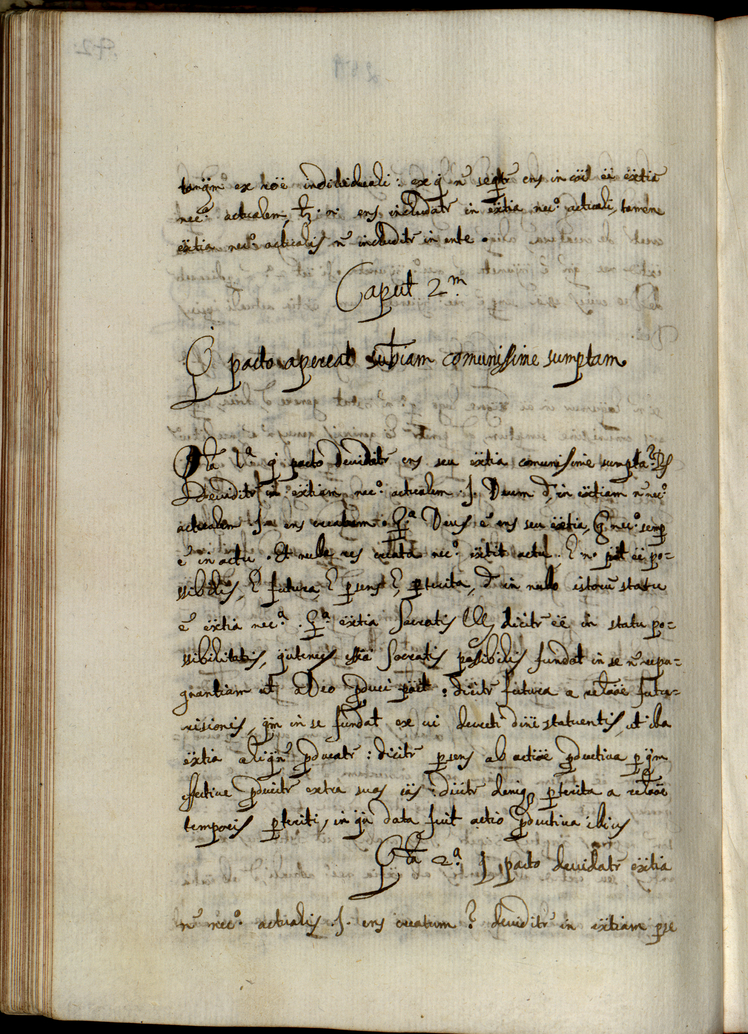 tanqm. ex roe individuali: ex q n. seqtr ens in coi ee extia
nec.o actualem, lz. n. ens includatr in extia nec.o actuali, tamen
extia nec.o actualis n. includitr in ente.
Caput 2.m
Q pacto apereat subiam comunissime sumptam.
Qta 1.a q pacto dividatr ens seu extia comunissime sumpta? Rs
Deviditr in extiam nec.o actualem .J. Deum &, in extiam n. nec.o
actualem .J. ens creatum. Deus e ens seu extia, nec.o semp
e in actu. Et nulla res creata nec.o extit actu. n. pot ee po=
ssibilis, futura, psens, pterita, & in nullo istoru statu
e extia nec.a extia Socratis dicitr ee in statu po=
ssibilitatis, quatenus essia Socratis possibilis fundat in se n. repu=
gnantiam ut a Deo pduci poit: dicitr futura a relaoe futu=
ritionis, qm in se fundat ex vi decreti dini statuentis, ut illa
extia aliqn pducatr: dicitr psens ab actioe pductiva p qm
effective pducitr extra suas cas: dicitr deniq pterita a relaoe
temporis pteriti, in qu data fuit actio pductiva illius
Qta 2.a q pacto dividatr extia
n. nec.o actualis .J. ens creatum? deviditr in extiam p se